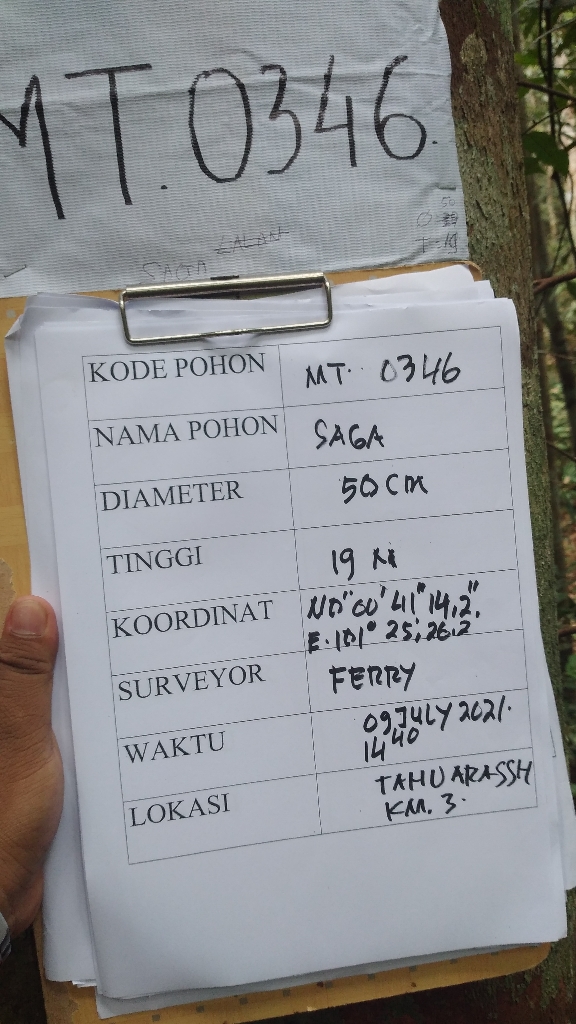 MT.0346.
50
T=19
SAGA
KODE POHON MT. 0346
NAMA POHON SAGA
DIAMETER 50 CM
TINGGI 19 M
KOORDINAT N0" 00' 41" 14,2".
E.101° 25', 26.2
SURVEYOR FERRY
WAKTU 09 JULY 2021.
14 40
LOKASI TAHURA SSH
KM. 3.